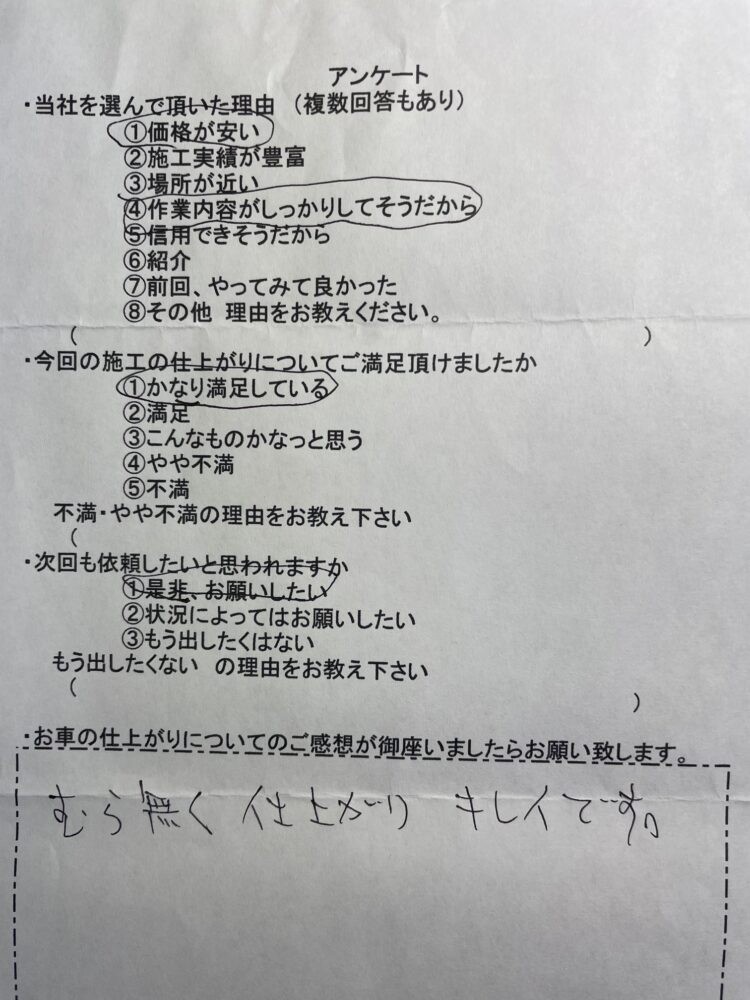 アンケート
・当社を選んで頂いた理由 （複数回答もあり）
①価格が安い
②施工実績が豊富
③場所が近い
④作業内容がしっかりしてそうだから
⑤信用できそうだから
⑥紹介
⑦前回、やってみて良かった
⑧その他 理由をお教えください。
（ ）
・今回の施工の仕上がりについてご満足頂けましたか
①かなり満足している
②満足
③こんなものかなっと思う
④やや不満
⑤不満
不満・やや不満の理由をお教え下さい
（
・次回も依頼したいと思われますか
①是非、お願いしたい
②状況によってはお願いしたい
③もう出したくはない
もう出したくない の理由をお教え下さい
（ ）
・お車の仕上がりについてのご感想が御座いましたらお願い致します。
むら無く 仕上がり キレイです。